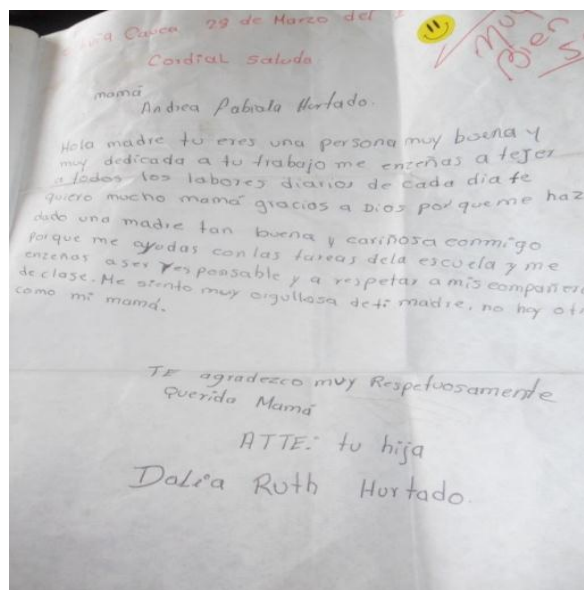 Cauca 29 de Marzo del
Muy
Bien
Cordial Saludo
mamá
Andrea Pabiola Hurtado.
Hola madre tu eres una persona muy buena y
muy dedicada a tu trabajo me enzeñas a tejer
a todos los labores diarios de cada dia te
quiero mucho mamá gracias a Dios por que me haz
dado una madre tan buena y cariñosa conmigo
porque me ayudas con las tareas dela escuela y me
enzeñas aser responsable y a respetar a mis compañero
de clase. Me siento muy orgullosa de ti madre, no hay
como mi mamá.
TE agradezco muy Respetuosamente
Querida Mamá
ATTE: tu hija
Dalia Ruth Hurtado.